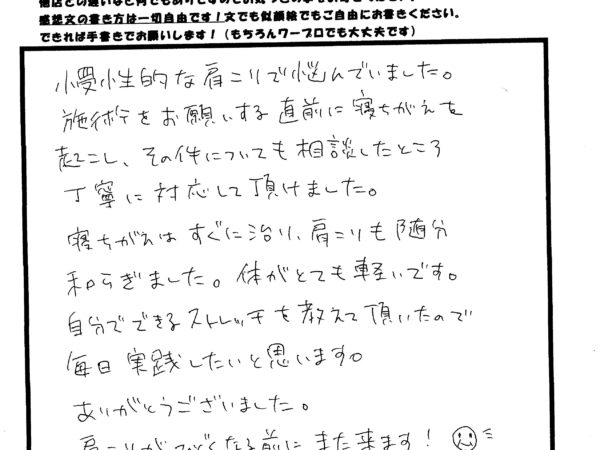 感想文の書き方は一切自由です！文でも似顔絵でもご自由にお書きください。
できれば手書きでお願いします！（もちろんワープロでも大丈夫です）
慢性的な肩こりで悩んでいました。
施術をお願いする直前に寝ちがえを
起こし、その件についても相談したところ
丁寧に対応して頂けました。
寝ちがえはすぐに治り、肩こりも随分
和らぎました。体がとても軽いです。
自分でできるストレッチを教えて頂いたので
毎日実践したいと思います。
ありがとうございました。
肩こりがひどくなる前にまた来ます！